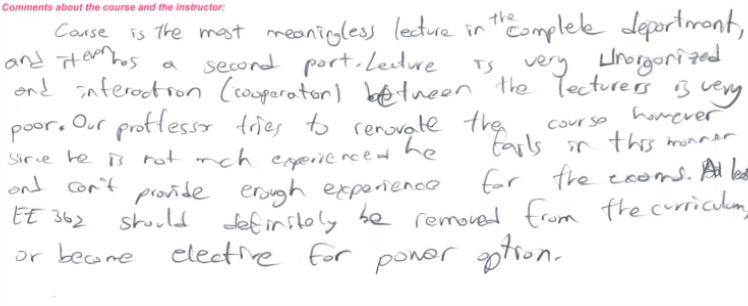 Comments about the course and the instructor:
Course is the most meaningless lecture in the complete department,
and it even has a second part. Lecture is very Unorganized
and interaction (cooperation) between the lecturers is very
poor. Our proffessor tries to renovate the course however
since he is not much experienced he fails in this manner
and can't provide enough experience for the exams. At least
EE 362 should definitely be removed from the curriculum,
or become elective for power option.